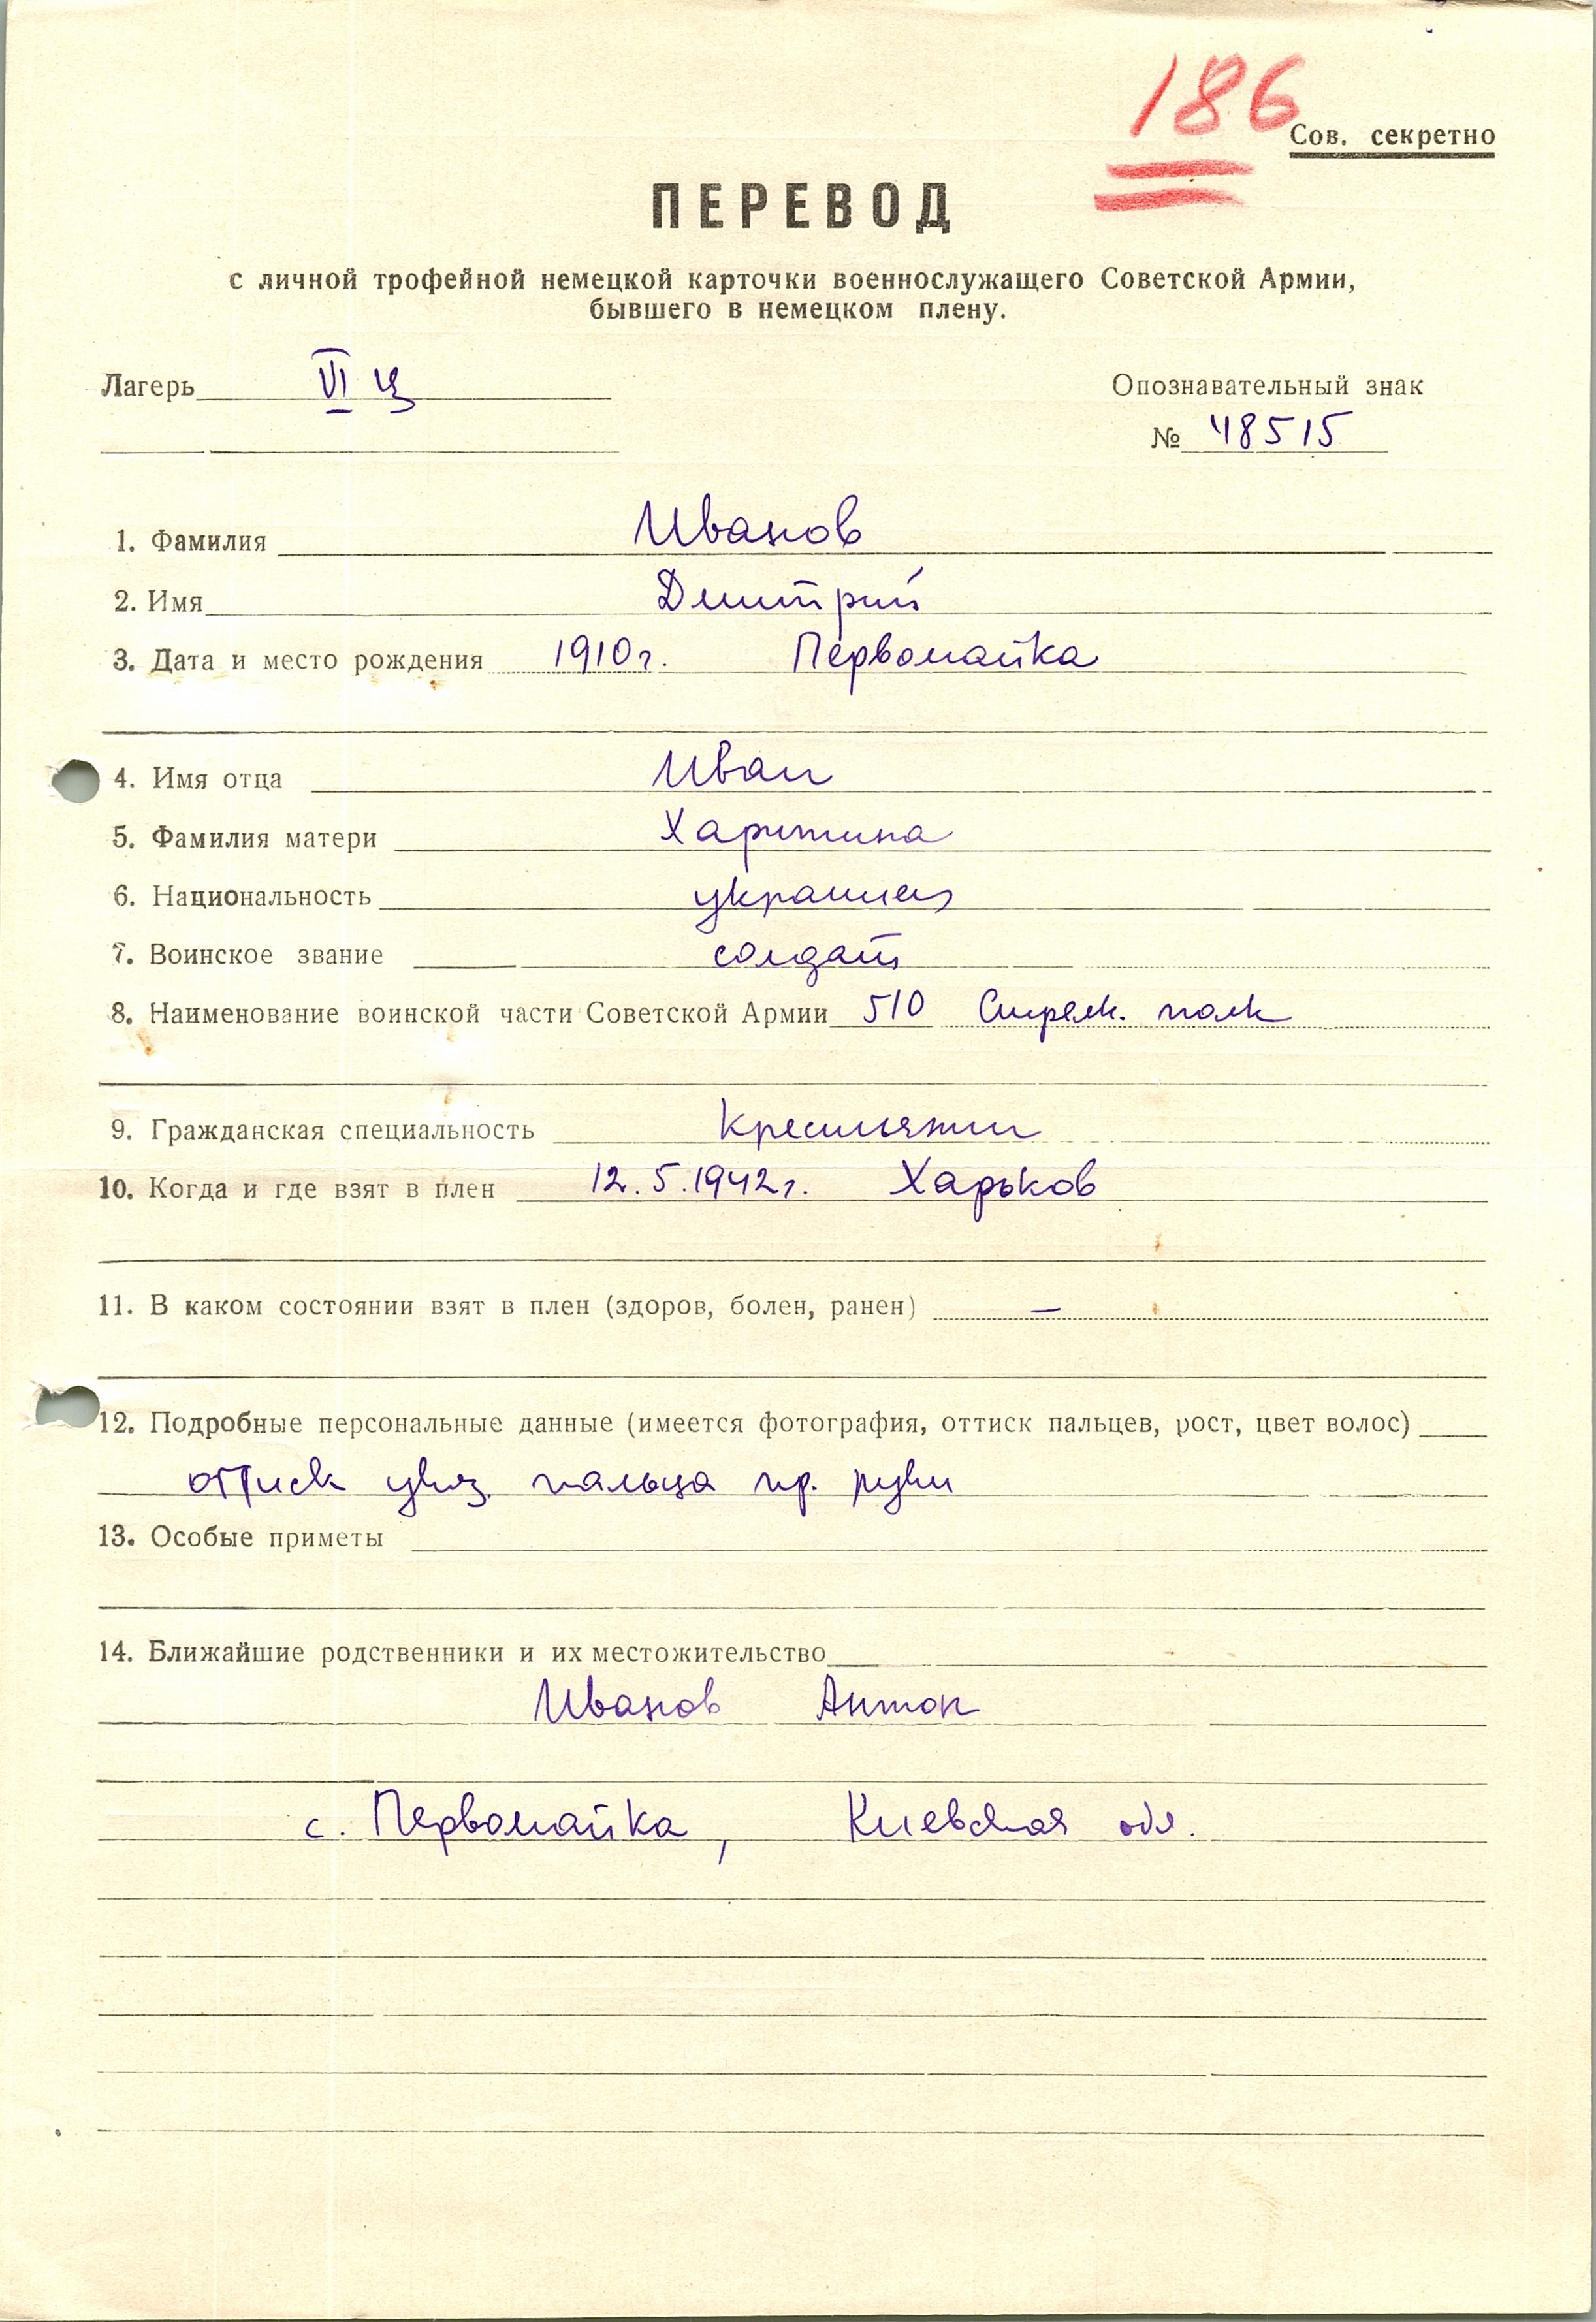 186
Сов. секретно
ПЕРЕВОД
с личной трофейной немецкой карточки военнослужащего Советской Армии,
бывшего в немецком плену.
Лагерь VI Ц
Опознавательный знак
№ 48515
1. Фамилия Иванов
2. Имя Дмитрий
3. Дата и место рождения 1910г. Первомайка
4. Имя отца Иван
5. Фамилия матери Харитина
6. Национальность украинец
7. Воинское звание солдат
8. Наименование воинской части Советской Армии 510 Стрелк. полк
9. Гражданская специальность Крестьянин
10. Когда и где взят в плен 12.5.1942г. Харьков
11. В каком состоянии взят в плен (здоров, болен, ранен) —
12. Подробные персональные данные (имеется фотография, оттиск пальцев, рост, цвет волос)
оттиск указ. пальца пр. руки
13. Особые приметы
14. Ближайшие родственники и их местожительство
Иванов Антон
с. Первомайка, Киевская обл.